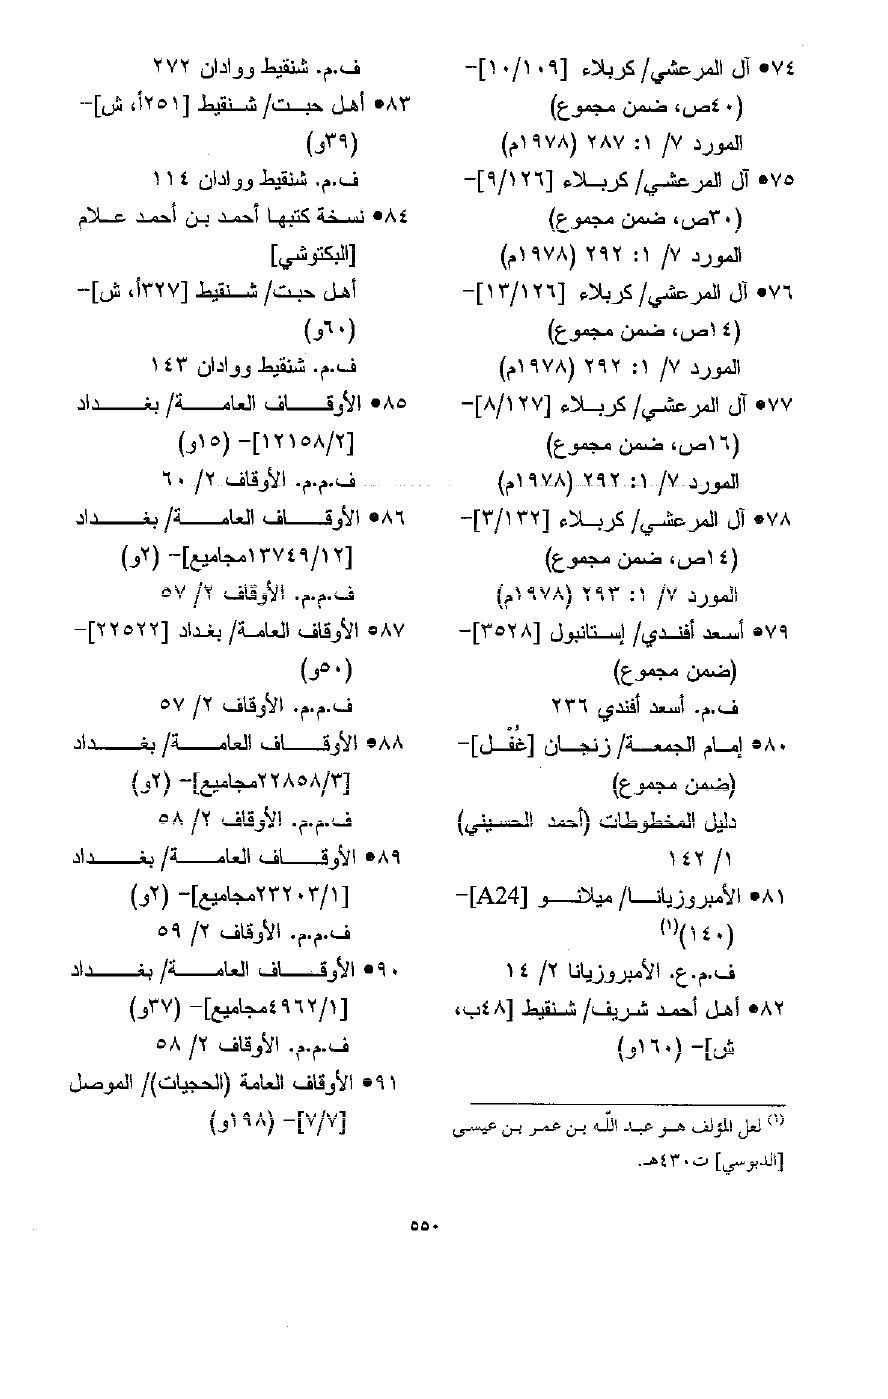 ٧٤• آل المرعشي/ كربلاء [١٠/١٠٩]-
(٤٠ص، ضمن مجموع)
المورد ٧/ ١: ٢٨٧ (١٩٧٨م)
٧٥• آل المرعشي/ كربلاء [٩/١٢٦]-
(٣٠ص، ضمن مجموع)
المورد ٧/ ١: ٢٩٢ (١٩٧٨م)
٧٦• آل المرعشي/ كربلاء [١٣/١٢٦]-
(١٤ص، ضمن مجموع)
المورد ٧/ ١: ٢٩٢ (١٩٧٨م)
٧٧• آل المرعشي/ كربلاء [٨/١٢٧]-
(١٦ص، ضمن مجموع)
المورد ٧/ ١: ٢٩٢ (١٩٧٨م)
٧٨• آل المرعشي/ كربلاء [٣/١٣٢]-
(١٤ص، ضمن مجموع)
المورد ٧/ ١: ٢٩٣ (١٩٧٨م)
٧٩• أسعد أفندي/ إستانبول [٣٥٢٨]-
(ضمن مجموع)
ف.م. أسعد أفندي ٢٣٦
٨٠• إمام الجمعة/ زنجان [غُفْل]-
(ضمن مجموع)
دليل المخطوطات (أحمد الحسيني)
١/ ١٤٢
٨١• الأمبروزيانا/ ميلانو [A24]-
(١٤٠)(١)
ف.م.ع. الأمبروزيانا ٢/ ١٤
٨٢• أهل أحمد شريف/ شنقيط [٤٨ب،
ش]- (١٦٠و)
(١) لعل المؤلف هو عبد اللّه بن عمر بن عيسى
[الدبوسي] ت٤٣٠هـ.
ف.م. شنقيط ووادان ٢٧٢
٨٣• أهل حبت/ شنقيط [٢٥١أ، ش]-
(٣٩و)
ف.م. شنقيط ووادان ١١٤
٨٤• نسخة كتبها أحمد بن أحمد علام
[البكتوشي]
أهل حبت/ شنقيط [٣٢٧أ، ش]-
(٦٠و)
ف.م. شنقيط ووادان ١٤٣
٨٥• الأوقاف العامة/ بغداد
[١٢١٥٨/٢]- (١٥و)
ف.م.م. الأوقاف ٢/ ٦٠
٨٦• الأوقاف العامة/ بغداد
[١٣٧٤٩/١٢مجاميع]- (٢و)
ف.م.م. الأوقاف ٢/ ٥٧
٨٧• الأوقاف العامة/ بغداد [٢٢٥٢٢]-
(٥٠و)
ف.م.م. الأوقاف ٢/ ٥٧
٨٨• الأوقاف العامة/ بغداد
[٢٢٨٥٨/٣مجاميع]- (٢و)
ف.م.م. الأوقاف ٢/ ٥٨
٨٩• الأوقاف العامة/ بغداد
[٢٣٢٠٣/١مجاميع]- (٢و)
ف.م.م. الأوقاف ٢/ ٥٩
٩٠• الأوقاف العامة/ بغداد
[٤٩٦٢/١مجاميع]- (٣٧و)
ف.م.م. الأوقاف ٢/ ٥٨
٩١• الأوقاف العامة (الحجيات)/ الموصل
[٧/٧]- (١٩٨و)
٥٥٠